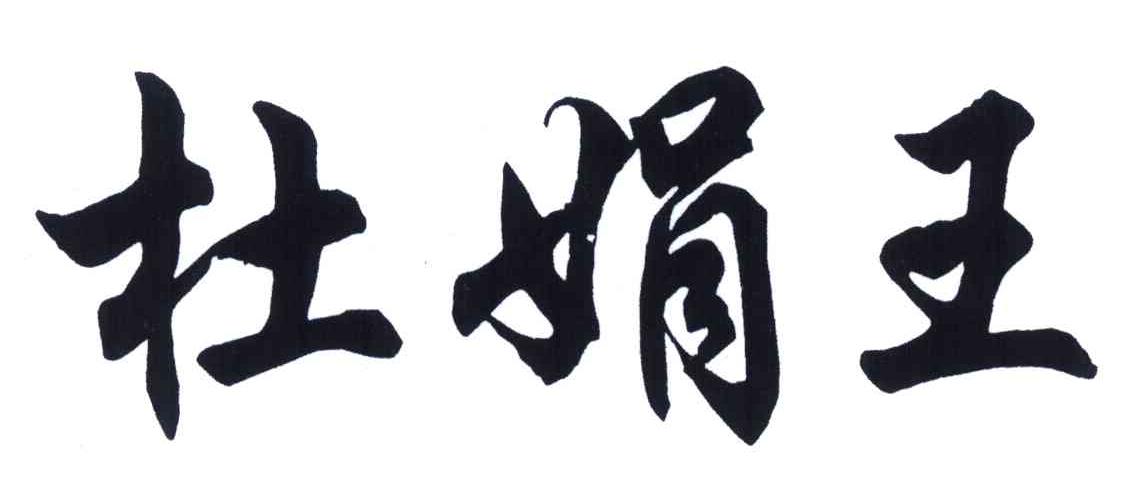 杜娟王